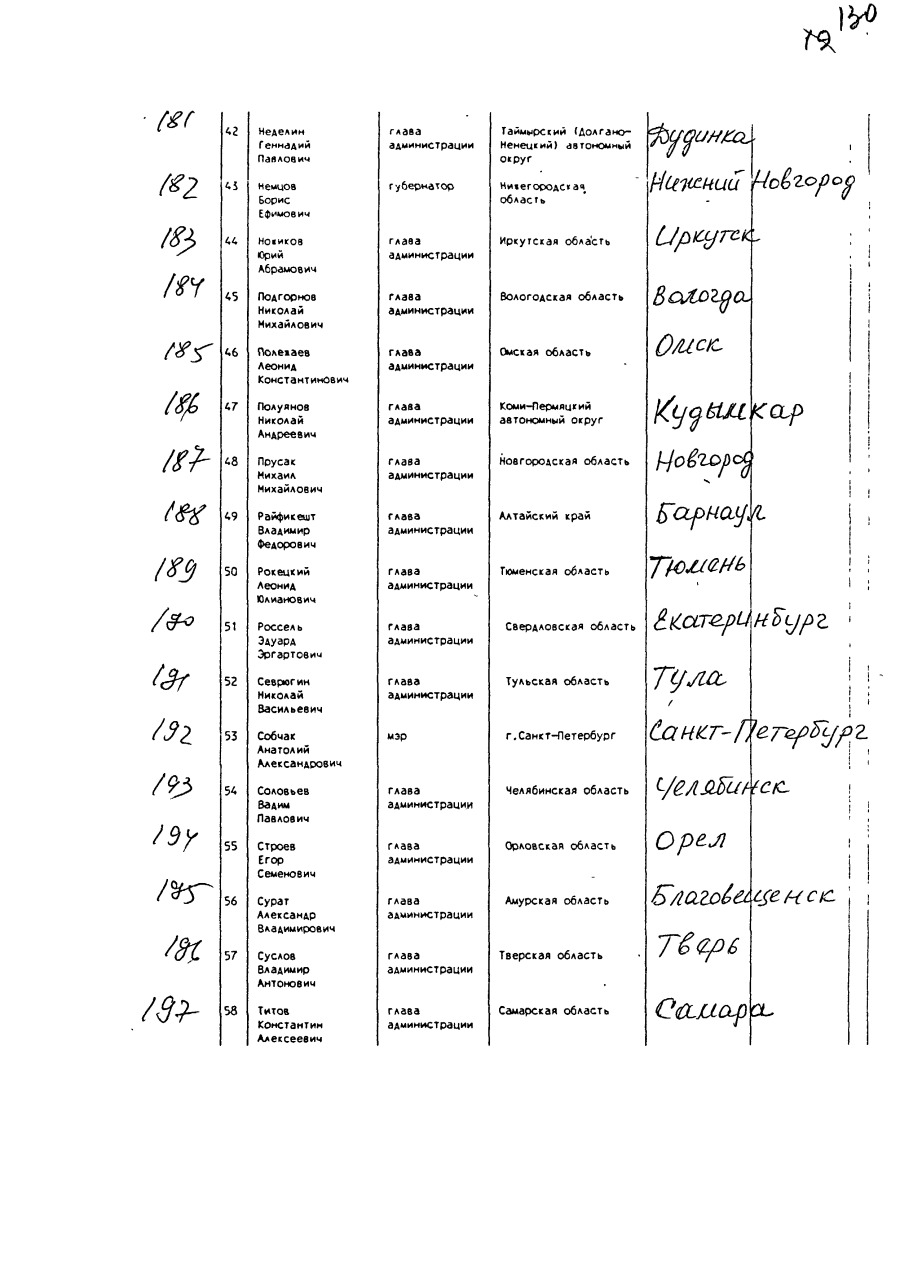 130
12
181 42 Неделин глава Таймырский (Долгано- Дудинка
Геннадий администрации Ненецкий) автономный
Павлович округ
182 43 Немцов губернатор Нижегородская Нижний Новгород
Борис область
Ефимович
183 44 Ножиков глава Иркутская область Иркутск
Юрий администрации
Абрамович
184 45 Подгорнов глава Вологодская область Вологда
Николай администрации
Михайлович
185 46 Полежаев глава Омская область Омск
Леонид администрации
Константинович
186 47 Полуянов глава Коми-Пермяцкий Кудымкар
Николай администрации автономный округ
Андреевич
187 48 Прусак глава Новгородская область Новгород
Михаил администрации
Михайлович
188 49 Райфикешт глава Алтайский край Барнаул
Владимир администрации
Федорович
189 50 Рокецкий глава Тюменская область Тюмень
Леонид администрации
Юлианович
190 51 Россель глава Свердловская область Екатеринбург
Эдуард администрации
Эргартович
191 52 Севрюгин глава Тульская область Тула
Николай администрации
Васильевич
192 53 Собчак мэр г.Санкт-Петербург Санкт-Петербург
Анатолий
Александрович
193 54 Соловьев глава Челябинская область Челябинск
Вадим администрации
Павлович
194 55 Строев глава Орловская область Орел
Егор администрации
Семенович
195 56 Сурат глава Амурская область Благовещенск
Александр администрации
Владимирович
196 57 Суслов глава Тверская область Тверь
Владимир администрации
Антонович
197 58 Титов глава Самарская область Самара
Константин администрации
Алексеевич